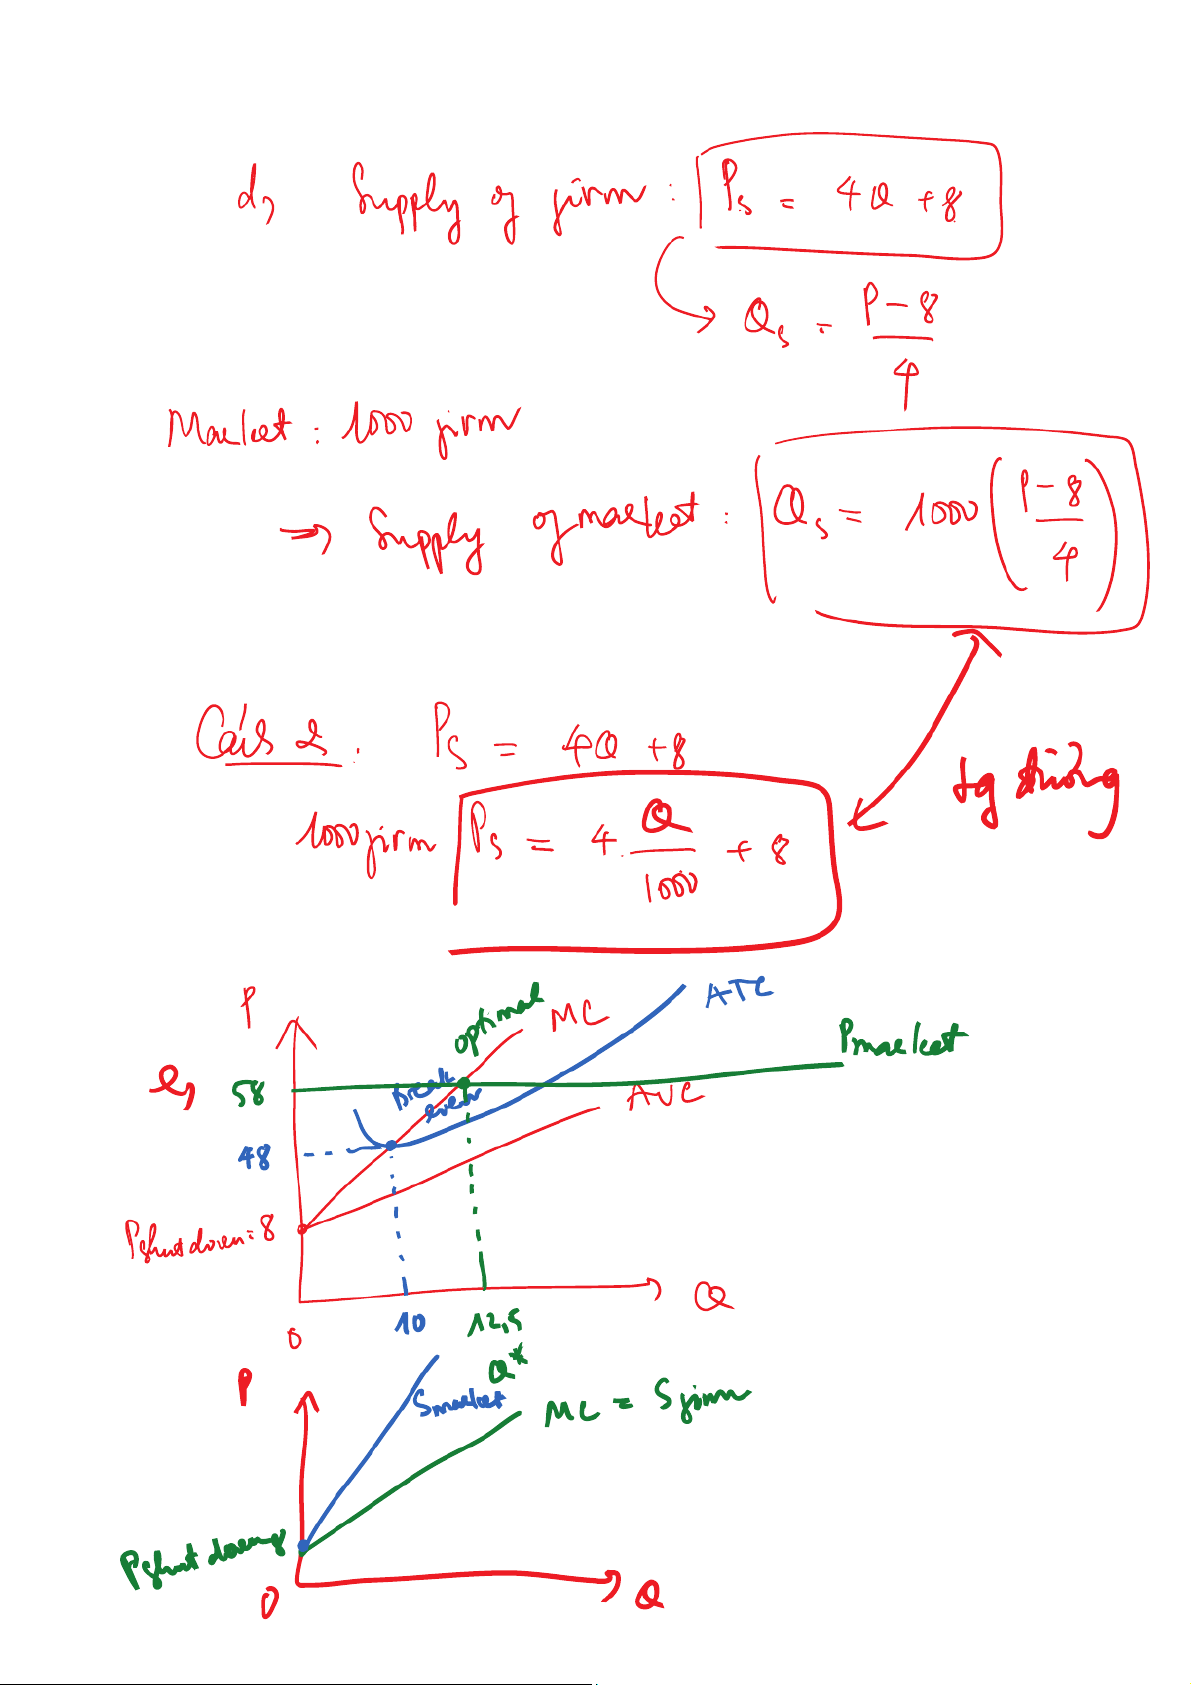 d, Supply of firm : Ps = 4Q + 8
→ Qs = P - 8 / 4
Market : 1000 firm
→ Supply of market : Qs = 1000 (P - 8 / 4)
Cách 2 : Ps = 4Q + 8
tg đương
1000 firm Ps = 4. Q / 1000 + 8
e,
P
optimal
MC
ATC
Pmarket
58
break even
AVC
48
Pshutdown = 8
0
10
12,5
Q
Q*
P
Smarket
MC = Sfirm
Pshutdown
0
Q